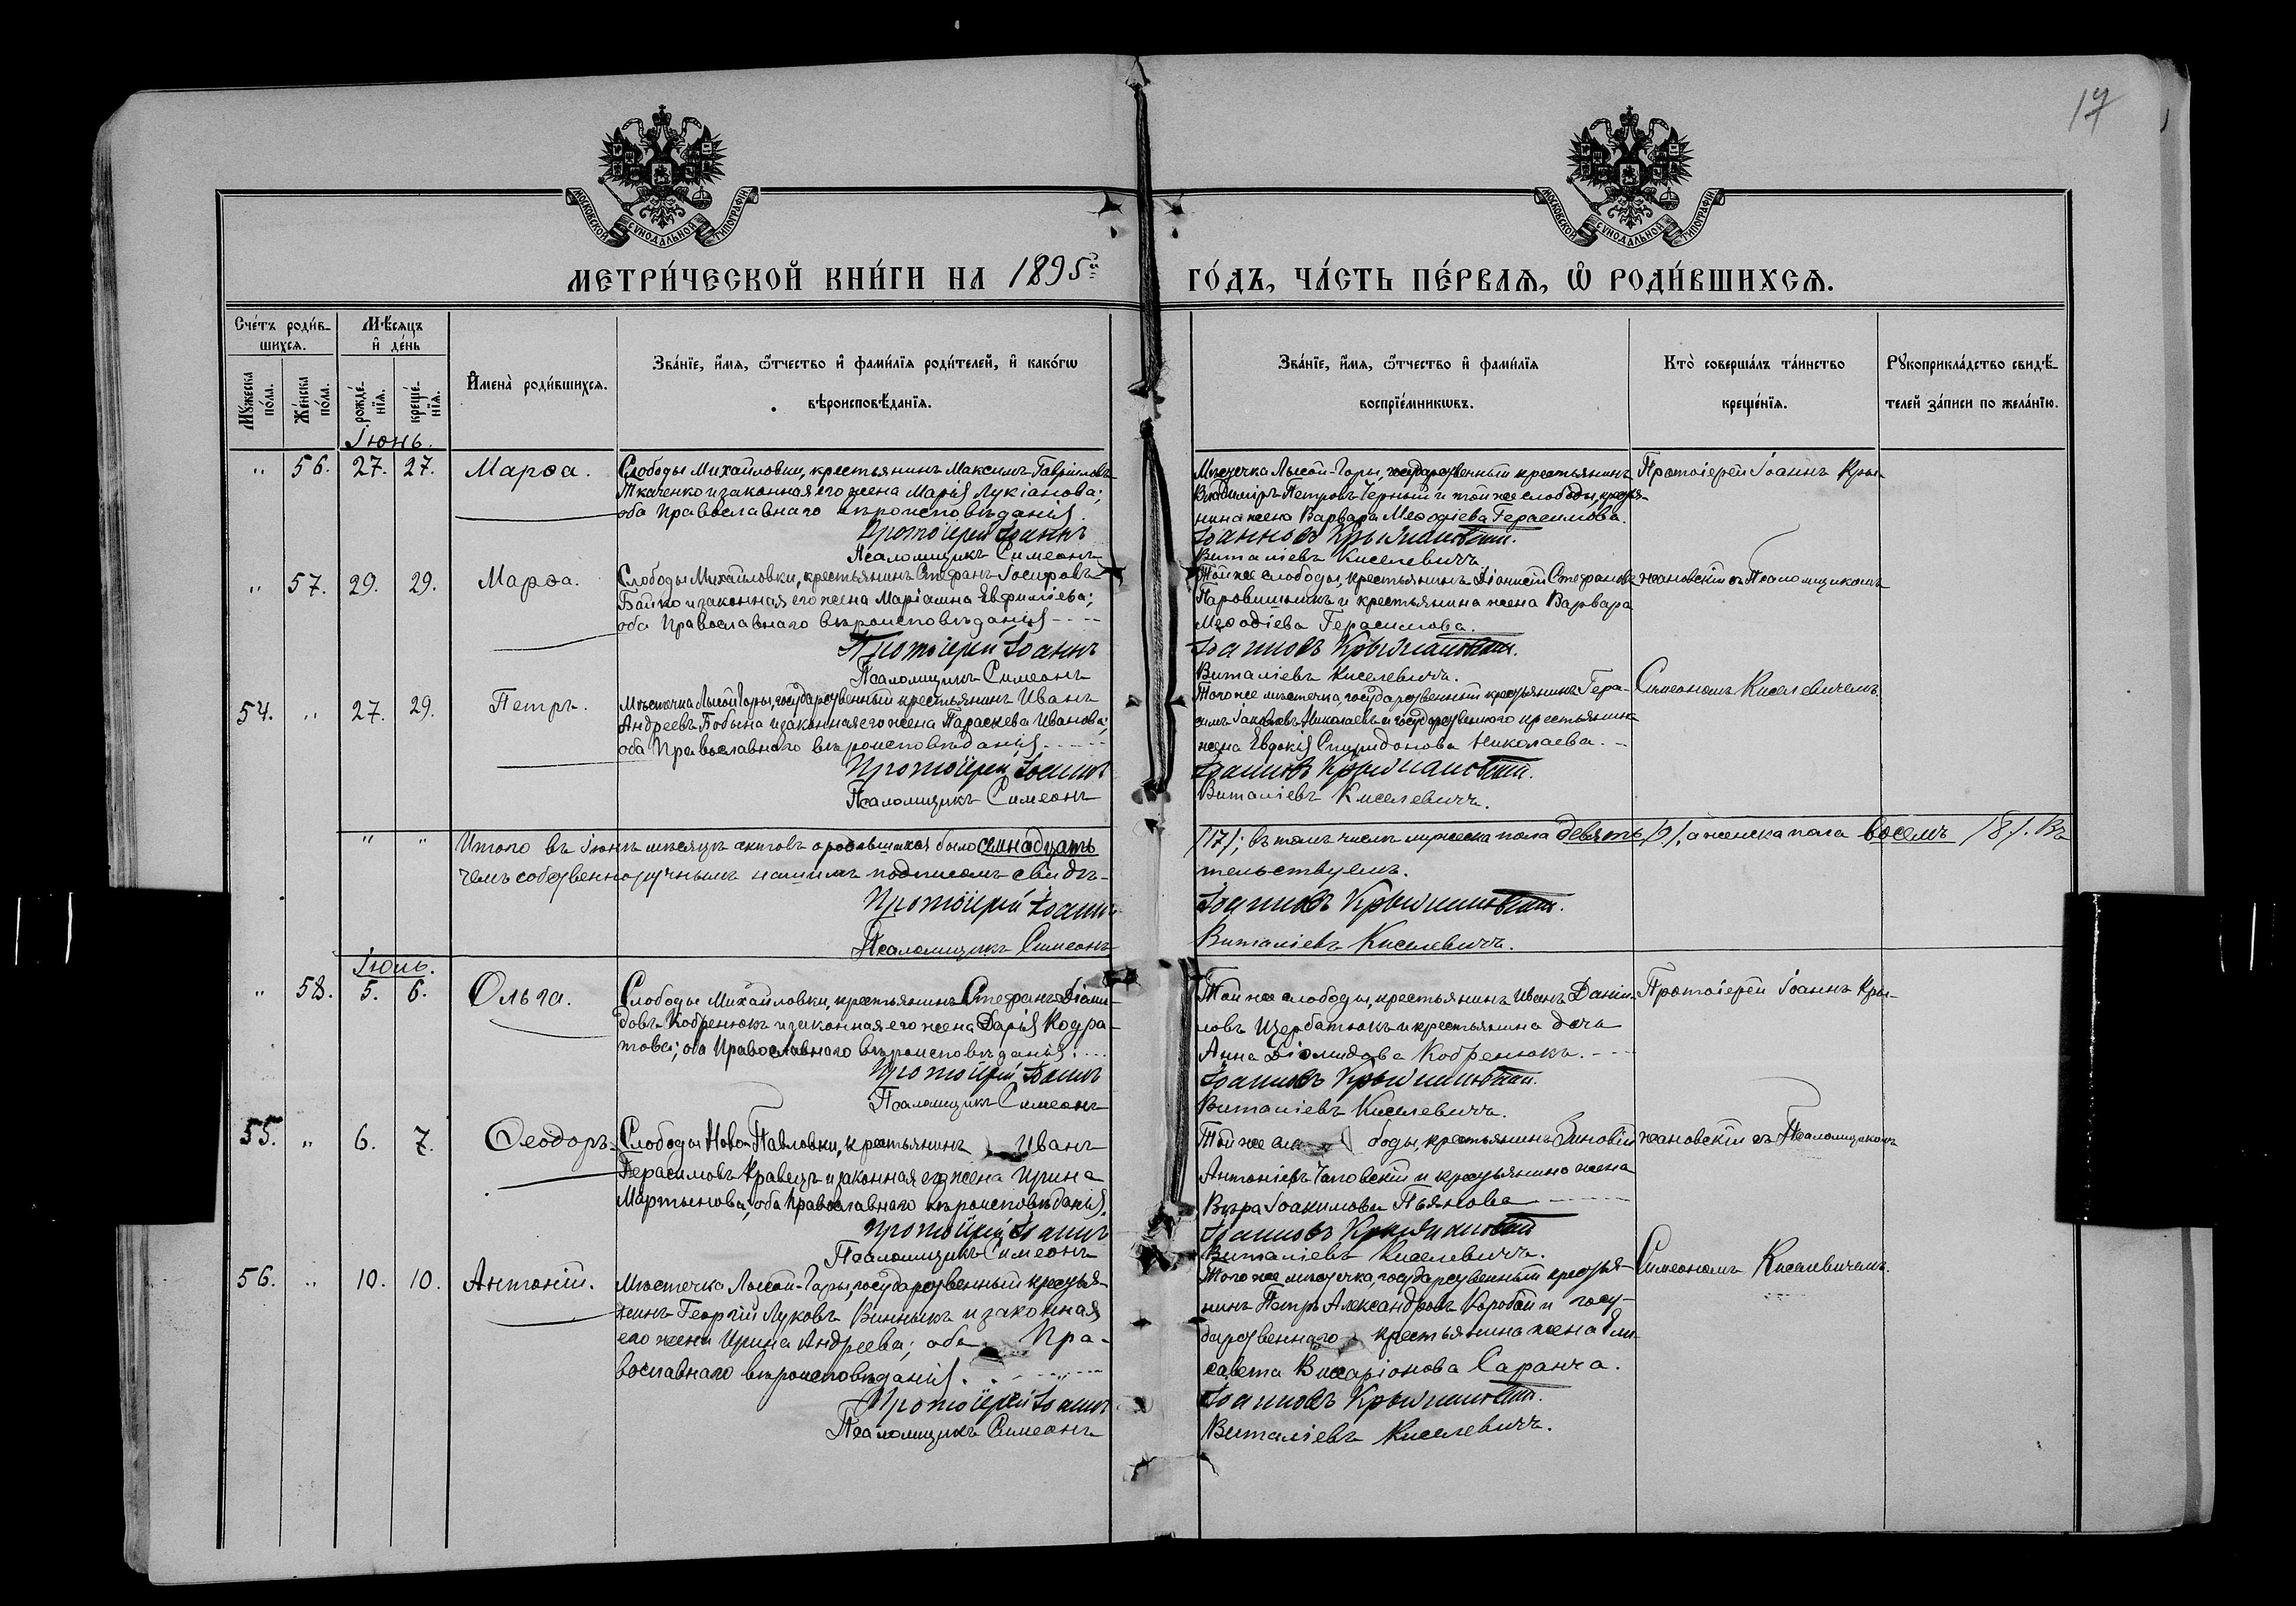 17
МОСКОВСКОЙ СѴНОДАЛЬНОЙ ТИПОГРАФІИ
МОСКОВСКОЙ СѴНОДАЛЬНОЙ ТИПОГРАФІИ
МЕТРИ́ЧЕСКОЙ КНИ́ГИ НА 1895й ГО́ДЪ, ЧА́СТЬ ПЕ́РВАѦ, Ѡ РОДИ́ВШИХСѦ.
Сче́тъ роди́в-
шихсѧ.
Мꙋжеска по́ла.
Же́нска по́ла.
Мѣ́сѧцъ
и де́нь
рожде́-
нїѧ.
креще́-
нїѧ.
Имена̀ роди́вшихсѧ.
Зва́нїе, и́мѧ, ѻ́тчество и фами́лїѧ роди́телей, и како́гѡ
вѣроисповѣ́данїѧ.
Зва́нїе, и́мѧ, ѻ́тчество и фами́лїѧ
воспрїе́мникѡвъ.
Кто̀ соверша́лъ та́инство
креще́нїѧ.
Рꙋкоприкла́дство свидѣ́-
телей за́писи по жела́нїю.
Іюнь.
" 56. 27. 27. Марѳа.
Слободы Михайловки, крестьянинъ Максимъ Гавріиловъ
Ткаченко и законная его жена Марія Лукіанова;
оба Православнаго вѣроисповѣданія.
Протоіерей Іоаннъ
Псаломщикъ Симеонъ
Мѣстечка Лысой-Горы, государственный крестьянинъ
Владиміръ Петровъ Черный и той же слободы, крестья-
нина жена Варвара Меѳодіева Герасимова.
Іоанновъ Крыжановскій.
Виталіевъ Киселевичъ.
Протоіерей Іоаннъ Кры-
" 57. 29. 29. Марѳа.
Слободы Михайловки, крестьянинъ Стефанъ Іосифовъ
Байко и законная его жена Маріамна Евфиміева;
оба Православнаго вѣроисповѣданія
Протоіерей Іоаннъ
Псаломщикъ Симеонъ
Той же слободы, крестьянинъ Діонисій Стефановъ
Паровишникъ и крестьянина жена Варвара
Меѳодіева Герасимова.
Іоанновъ Крыжановскій.
Виталіевъ Киселевичъ.
жановскій съ Псаломщикомъ
54. " 27. 29. Петръ.
Мѣстечка Лысой Горы, государственный крестьянинъ Иванъ
Андреевъ Бобына и законная его жена Параскева Иванова;
оба Православнаго вѣроисповѣданія.
Протоіерей Іоаннъ
Псаломщикъ Симеонъ
Того же мѣстечка, государственный крестьянинъ Гера-
симъ Іаковлевъ Николаевъ и государственного крестьянина
жена Евдокія Спиридонова Николаева.
Іоанновъ Крыжановскій.
Виталіевъ Киселевичъ.
Симеономъ Киселевичемъ.
" " Итого въ Іюнѣ мѣсяцѣ актовъ о родившихся было семнадцать /17/; въ томъ числѣ мужеска пола девять /9/, а женска пола восемь /8/. Въ
чемъ собственноручнымъ нашимъ подписомъ свидѣ-тельствуемъ.
Протоіерей Іоаннъ Іоанновъ Крыжановскій.
Псаломщикъ Симеонъ Виталіевъ Киселевичъ.
Іюль.
" 58. 5. 6. Ольга.
Слободы Михайловки, крестьянинъ Стефанъ Діоми-
довъ Кобренюкъ и законная его жена Дарія Кодра-
това; оба Православнаго вѣроисповѣданія.
Протоіерей Іоаннъ
Псаломщикъ Симеонъ
Той же слободы, крестьянинъ Иванъ Даніи-
ловъ Щербатюкъ и крестьянина дочь
Анна Діомидова Кобренюкъ.
Іоанновъ Крыжановскій.
Виталіевъ Киселевичъ.
Протоіерей Іоаннъ Кры-
55. " 6. 7. Ѳеодоръ.
Слободы Ново-Павловки, крестьянинъ Иванъ
Герасимовъ Кравецъ и законная его жена Ирина
Мартынова, оба Православнаго вѣроисповѣданія.
Протоіерей Іоаннъ
Псаломщикъ Симеонъ
Той же слободы, крестьянинъ Зиновій
Антоніевъ Чаповскій и крестьянина жена
Вѣра Іоакимова Пьянова
Іоанновъ Крыжановскій
Виталіевъ Киселевичъ.
жановскій съ Псаломщикомъ
56. " 10. 10. Антоній.
Мѣстечка Лысой-Горы, государственный крестья-
нинъ Георгій Луковъ Винникъ и законная
его жена Ирина Андреева; оба Пра-
вославнаго вѣроисповѣданія.
Протоіерей Іоаннъ
Псаломщикъ Симеонъ
Того же мѣстечка, государственный крестья-
нинъ Петръ Александровъ Коробой и госу-
дарственнаго крестьянина жена Ели-
савета Виссаріонова Саранча.
Іоанновъ Крыжановскій.
Виталіевъ Киселевичъ.
Симеономъ Киселевичемъ.